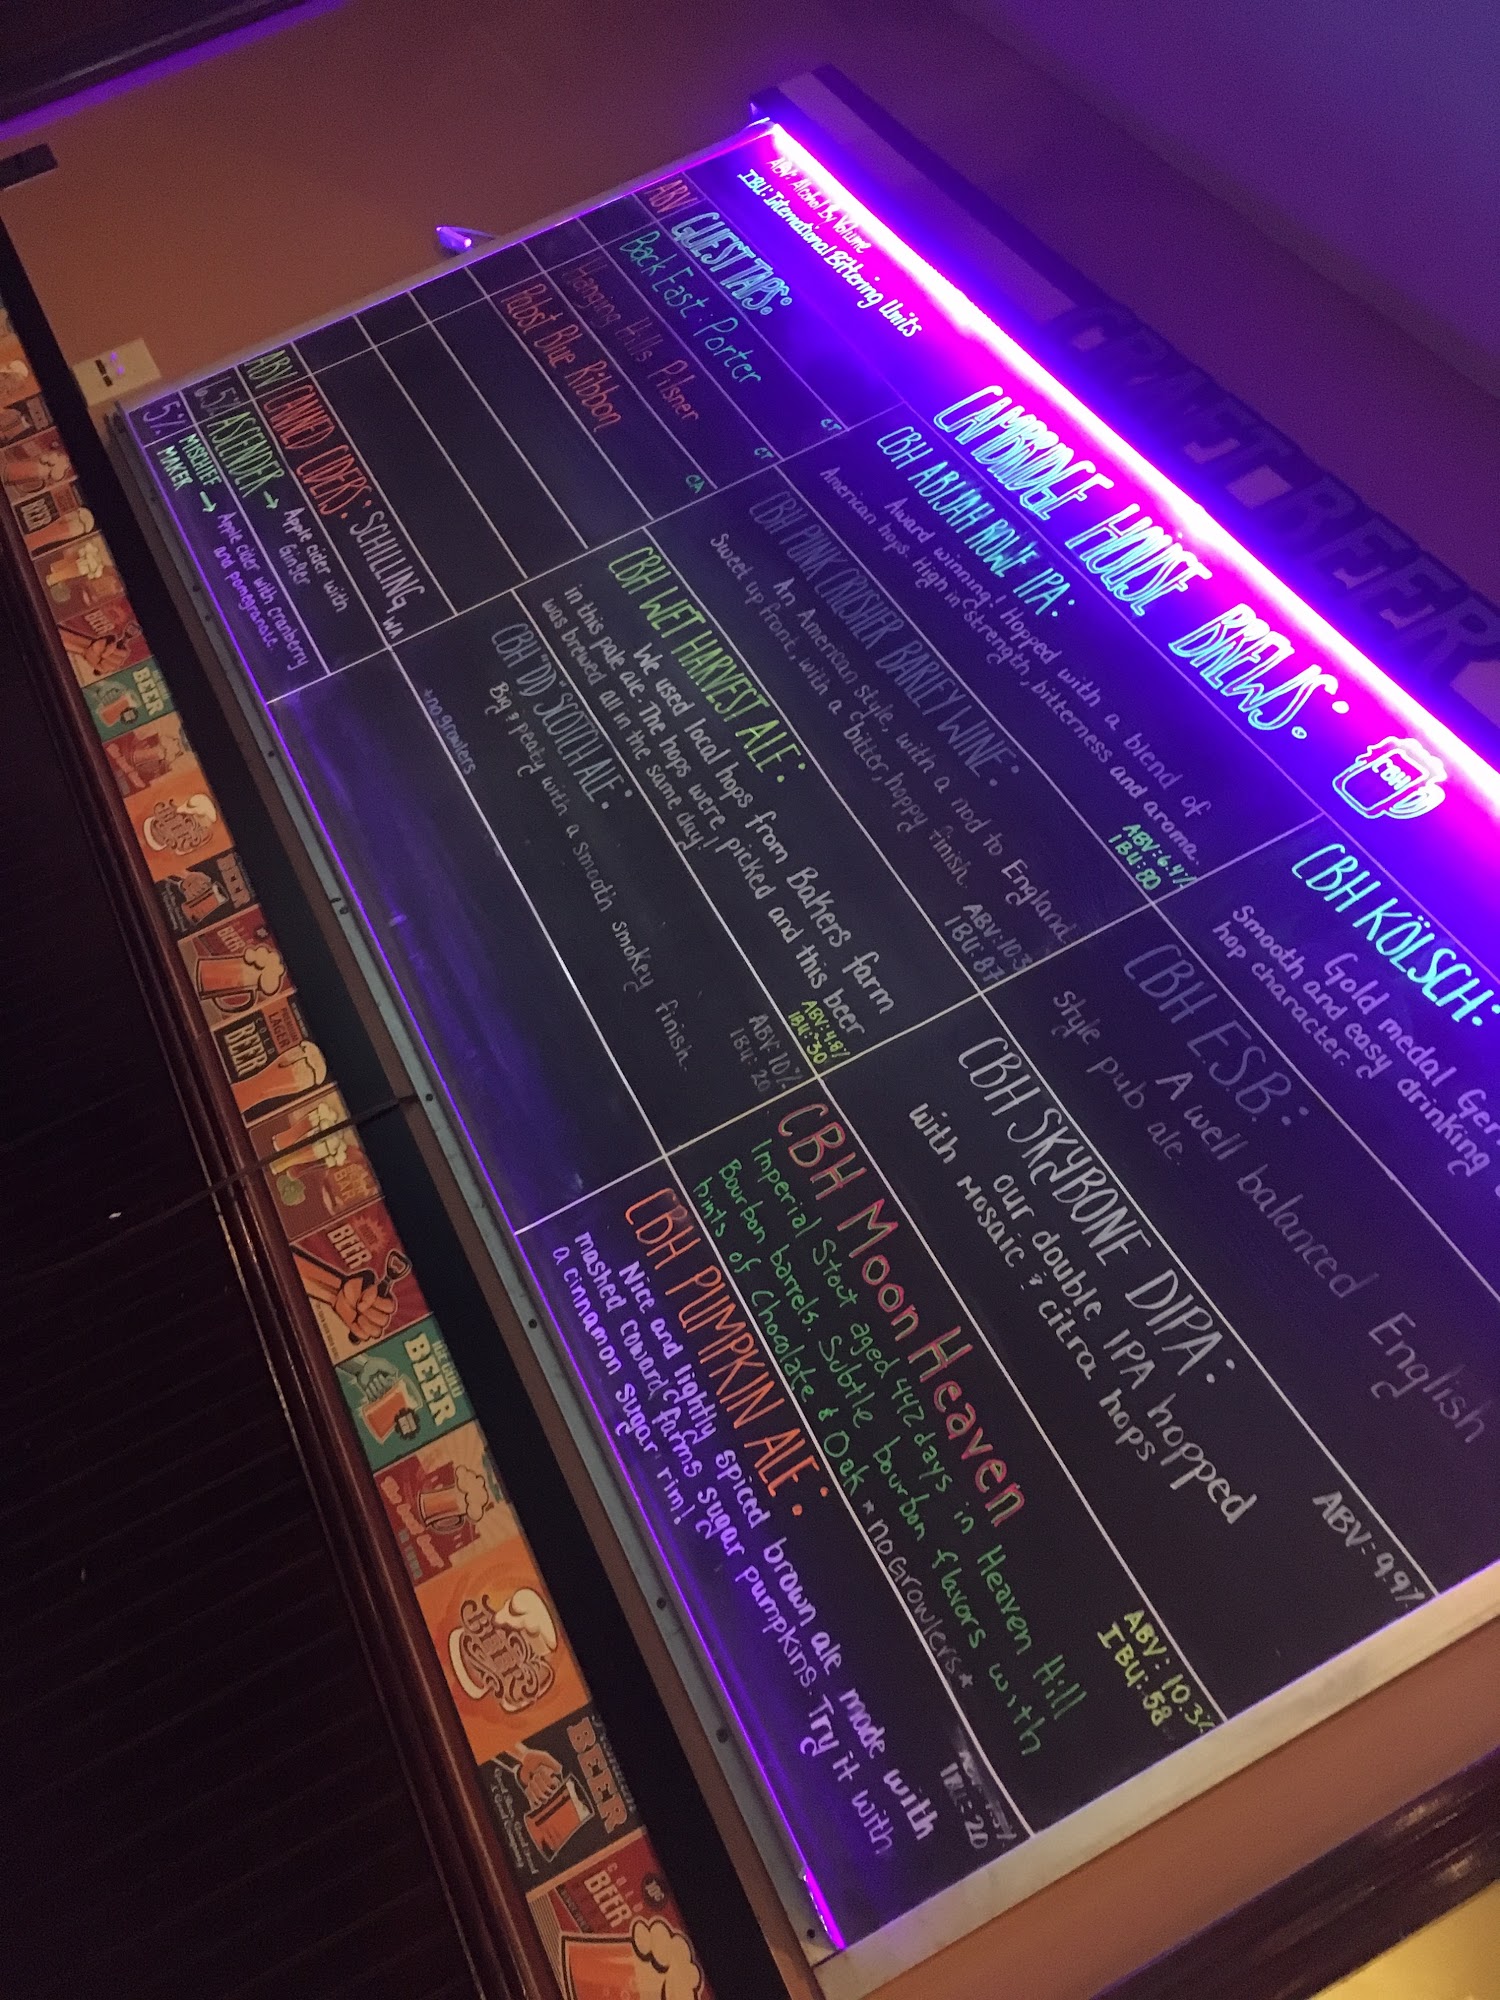 CRAFT BEER
ABV: Alcohol By Volume
IBU: International Bittering Units
CAMBRIDGE HOUSE BREWS:
CBH
ABV GUEST TAPS:
Back East: Porter CT
Hanging Hills Pilsner CT
Pabst Blue Ribbon CA
ABV CANNED CIDERS: SCHILLING, WA
6.5% ASCENDER → Apple cider with
Ginger
5% MISCHIEF
MAKER → Apple cider with cranberry
and pomegranate.
CBH ABIJAH ROWE IPA:
Award winning! Hopped with a blend of
American hops. High in strength, bitterness and aroma.
ABV: 6.4%
IBU: 80
CBH PINK CRUSHER BARLEY WINE:
An American style, with a nod to England.
Sweet up front, with a bitter, hoppy finish.
ABV: 10.3
IBU: 87
CBH WET HARVEST ALE:
We used local hops from Bakers farm
in this pale ale. The hops were picked and this beer
was brewed all in the same day!
ABV: 4.8%
IBU: 30
CBH "DD" SCOTCH ALE:
Big & peaty with a smooth smokey finish.
*no growlers
ABV: 10%
IBU: 20
CBH KÖLSCH:
Gold medal
Smooth and easy drinking
hop character.
CBH ESB:
A well balanced English
style pub ale.
CBH SKYBONE DIPA:
our double IPA hopped
with Mosaic & citra hops
ABV: 9.9%
CBH Moon Heaven
Imperial Stout aged 442 days in Heaven Hill
Bourbon barrels. Subtle bourbon flavors with
hints of Chocolate & Oak *no Growlers*
ABV: 10.3%
IBU: 58
CBH PUMPKIN ALE:
Nice and lightly spiced brown ale made with
mashed coward farms sugar pumpkins. Try it with
a cinnamon sugar rim!
IBU: 20
BEER
BEER
BEER
BEER
BEER
BEER
LAGER
COLD
BEER
BAR
BEER
ICE COLD
BEER
BEER
BEER
COLD
BEER